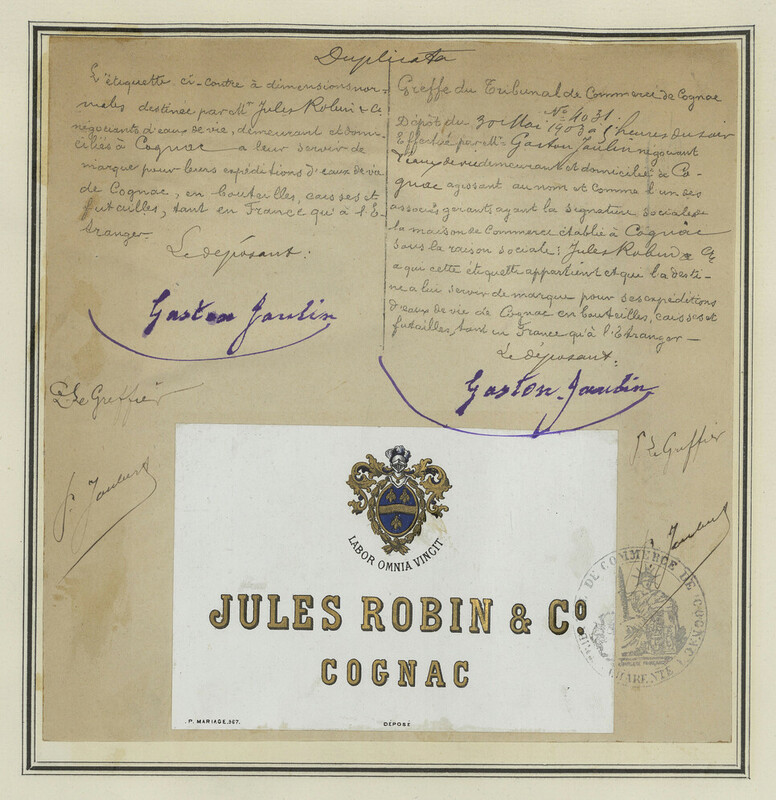 Duplicata
L'étiquette ci-contre à dimensions nor-
males destinée par Mrs Jules Robin & Co
négociants d'eaux de vie, demeurant et domi-
ciliés à Cognac a leur servir de
marque pour leurs expéditions d'eaux de vie
de Cognac, en bouteilles, caisses et
futailles, tant en France qu'à l'E-
tranger.
Le déposant:
Gaston Jaulin
P. Le Greffier
Greffe du Tribunal de Commerce de Cognac
No 4031
Dépôt du 30 Mai 1903 à heures du soir
Effectué par Mr Gaston Jaulin négociant
d'eaux de vie demeurant et domicilié à Co-
gnac agissant au nom et comme l'un des
associés gerants ayant la signature sociale de
la maison de Commerce établie à Cognac
sous la raison sociale: Jules Robin & Co
a qui cette étiquette appartient et qui la desti-
ne a lui servir de marque pour ses expéditions
d'eaux de vie de Cognac en bouteilles, caisses et
futailles, tant en France qu'à l'Etranger —
Le déposant:
Gaston Jaulin
P. Le Greffier
LABOR OMNIA VINCIT
JULES ROBIN & Co.
COGNAC
P. MARIAGE, 367.
DÉPOSÉ
DE COMMERCE DE COGNAC
CHARENTE